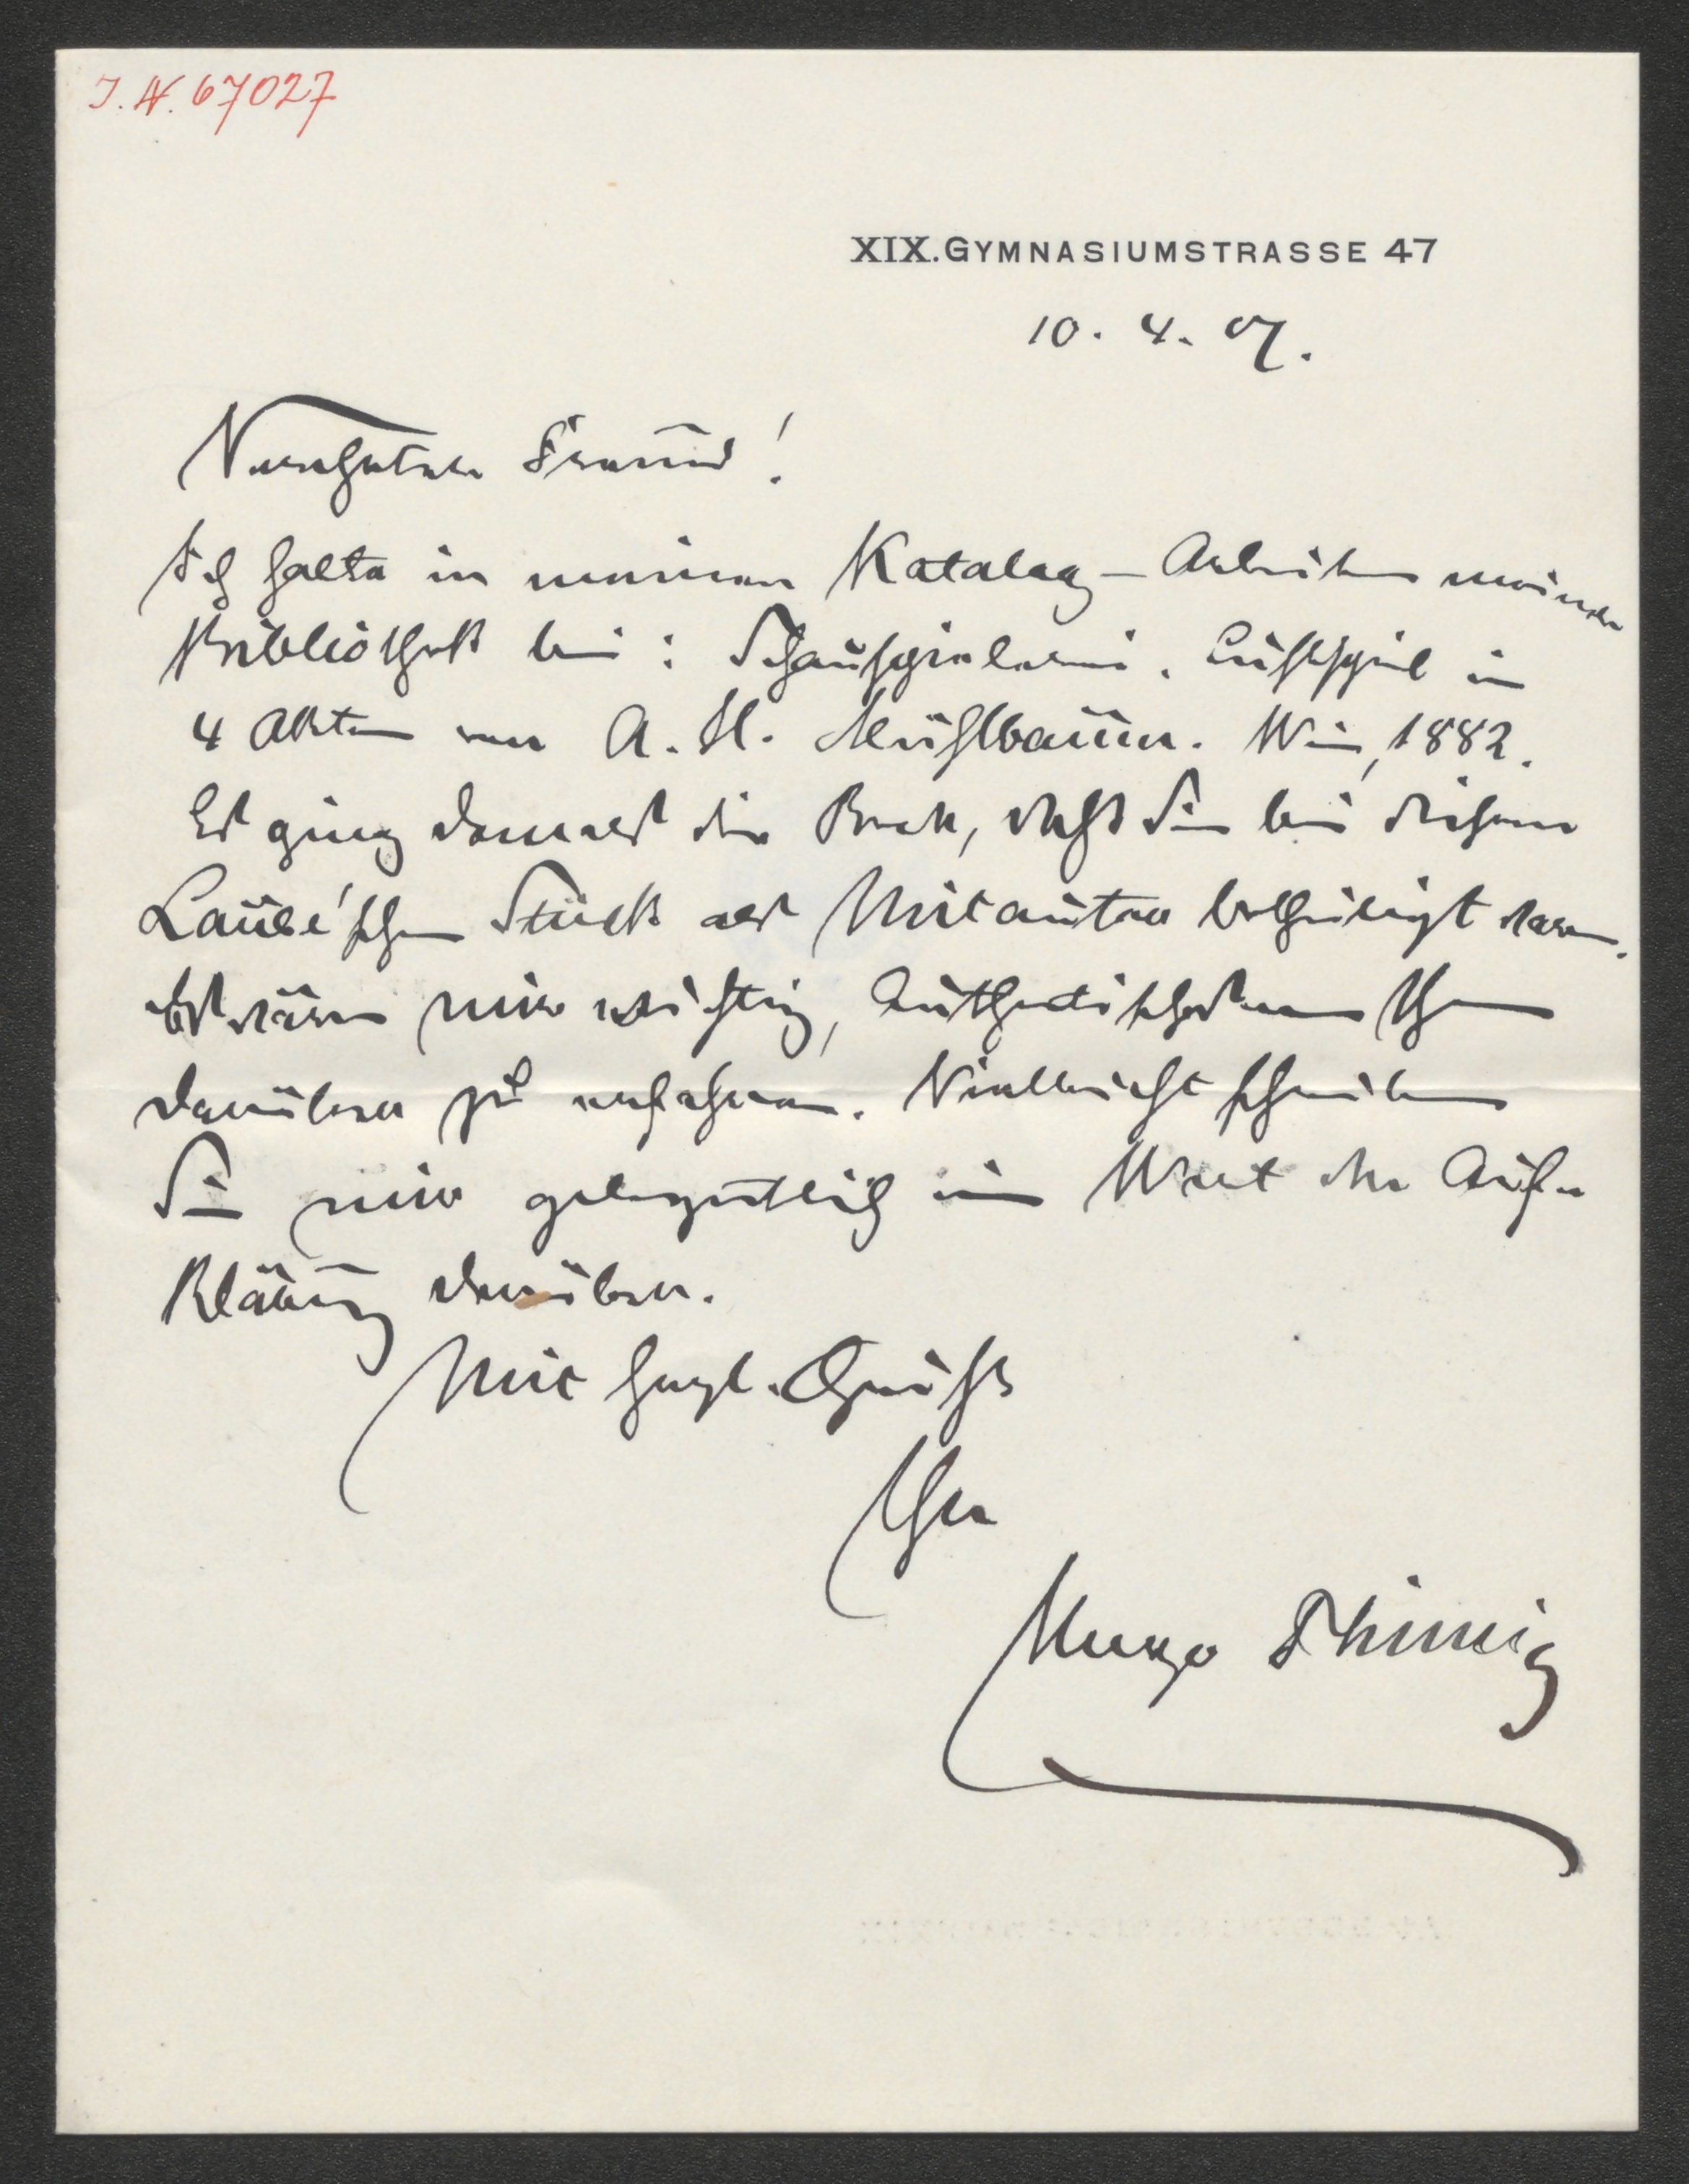 J. N. 67027
XIX. GYMNASIUMSTRASSE 47
10. 4. 07.
Verehrter Freund!
Ich halte in meinen Katalog-Arbeiten meiner
Bibliothek bei: Schauspielerei. Lustspiel in
4 Akten von A. H. Mühlbaum. Wien, 1882.
Es ging damals die Rede, daß Sie bei diesem
Laube'schen Stück als Mitautor betheiligt waren.
Es wäre mir wichtig, Authentisches von Ihnen
darüber zu erfahren. Vielleicht schreiben
Sie mir gelegentlich ein Wort der Auf-
klärung darüber.
Mit herzl. Gruß
Ihr
Hugo Thimig